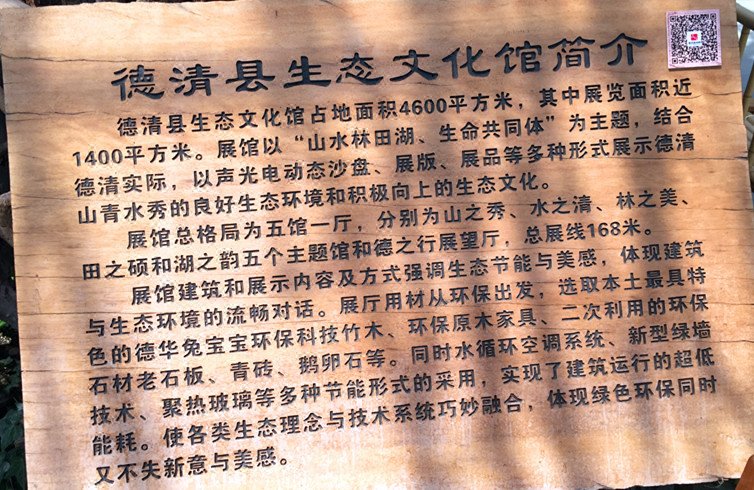 德清县生态文化馆简介
德清县生态文化馆占地面积4600平方米，其中展览面积近
1400平方米。展馆以“山水林田湖、生命共同体”为主题，结合
德清实际，以声光电动态沙盘、展版、展品等多种形式展示德清
山青水秀的良好生态环境和积极向上的生态文化。
展馆总格局为五馆一厅，分别为山之秀、水之清、林之美、
田之硕和湖之韵五个主题馆和德之行展望厅，总展线168米。
展馆建筑和展示内容及方式强调生态节能与美感，体现建筑
与生态环境的流畅对话。展厅用材从环保出发，选取本土最具特
色的德华兔宝宝环保科技竹木、环保原木家具、二次利用的环保
石材老石板、青砖、鹅卵石等。同时水循环空调系统、新型绿墙
技术、聚热玻璃等多种节能形式的采用，实现了建筑运行的超低
能耗。使各类生态理念与技术系统巧妙融合，体现绿色环保同时
又不失新意与美感。